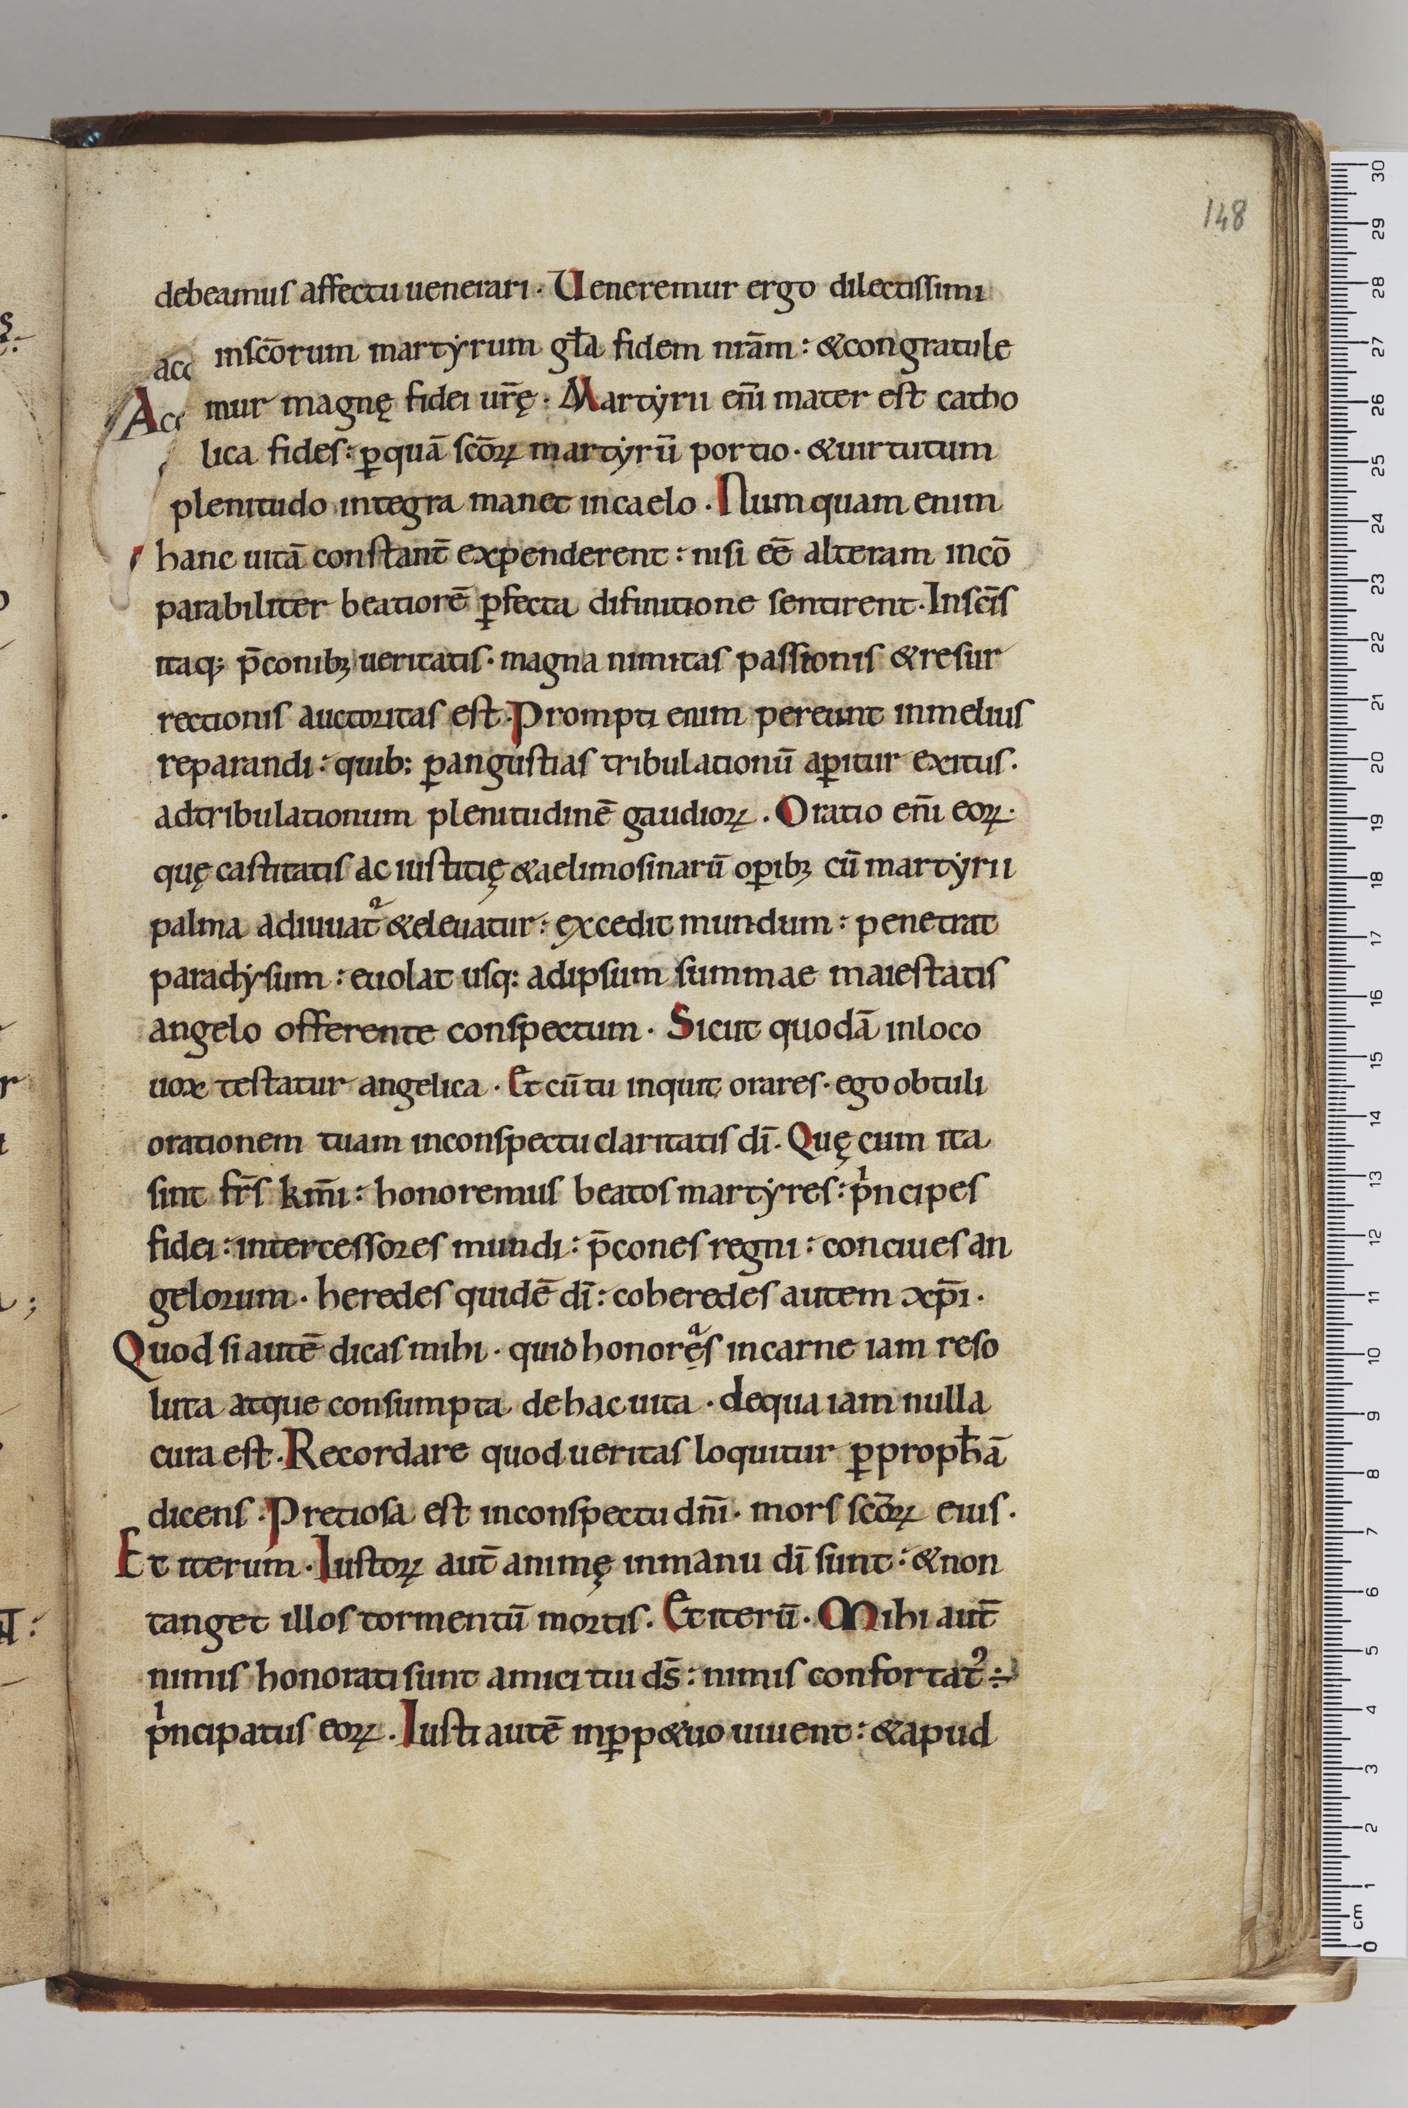 148
debeamuſ affectu uenerari · Ueneremur ergo dilectiſſimi
inſcōrum martẏrum gƚa fidem nr̄am : & congratule
mur magnę fidei ur̄ę · Martẏrii eni̅ mater eſt catho
lica fideſ : ꝑ quā ſcōꝝ martẏrū portio · & uirtutum
plenitudo integra manet in caelo . Numquam enim
hanc uitā conſtant̄ expenderent : niſi eē alteram incō
parabiliter beatiorē ꝑfecta difinitione ſentirent · In ſcīſ
itaq; p̄conibꝫ ueritatiſ · magna nimitaſ paſſioniſ & reſur
rectioniſ auctoritaſ eſt . Prompti enim pereunt in meliuſ
reparandi : quib; ꝑ anguſtiaſ tribulationū aꝑitur exituſ .
ad tribulationum plenitudinē gaudioꝝ . Oratio eni̅ eoꝝ ·
quę caſtitatiſ ac iuſtitię & aelimoſinarū oꝑibꝫ cū martẏrii
palma adiuuat᷑ & eleuatur : excedit mundum : penetrat
paradẏſum : euolat uſq; ad ipſum ſummae maieſtatiſ
angelo offerente conſpectum . Sicut quodā in loco
uox teſtatur angelica . Et cū tu inquit orareſ · ego obtuli
orationem tuam in conſpectu claritatiſ dī . Quę cum ita
ſint fr̄ſ km̄i : honoremuſ beatoſ martẏreſ : pͥncipeſ
fidei : interceſſoreſ mundi : p̄coneſ regni : conciueſ an
gelorum · heredeſ quidē dī : coheredeſ autem xp̄i .
Quod ſi autē dicaſ mihi · quid honorͣęſ in carne iam reſo
luta atque conſumpta de hac uita · de qua iam nulla
cura eſt . Recordare quod ueritaſ loquitur ꝑ prophā
dicenſ . Pretioſa eſt in conſpectu dn̄i · morſ ſcōꝝ eiuſ .
Et iterum . Iuſtoꝝ aut̄ animę in manu dī ſunt : & non
tanget illoſ tormentū mortiſ . Et iterū . Mihi aut̄
nimiſ honorati ſunt amici tui dſ̄ : nimiſ confortat᷒ ÷
pͥncipatuſ eoꝝ . Iuſti autē in ꝑp&uo uiuent : & apud